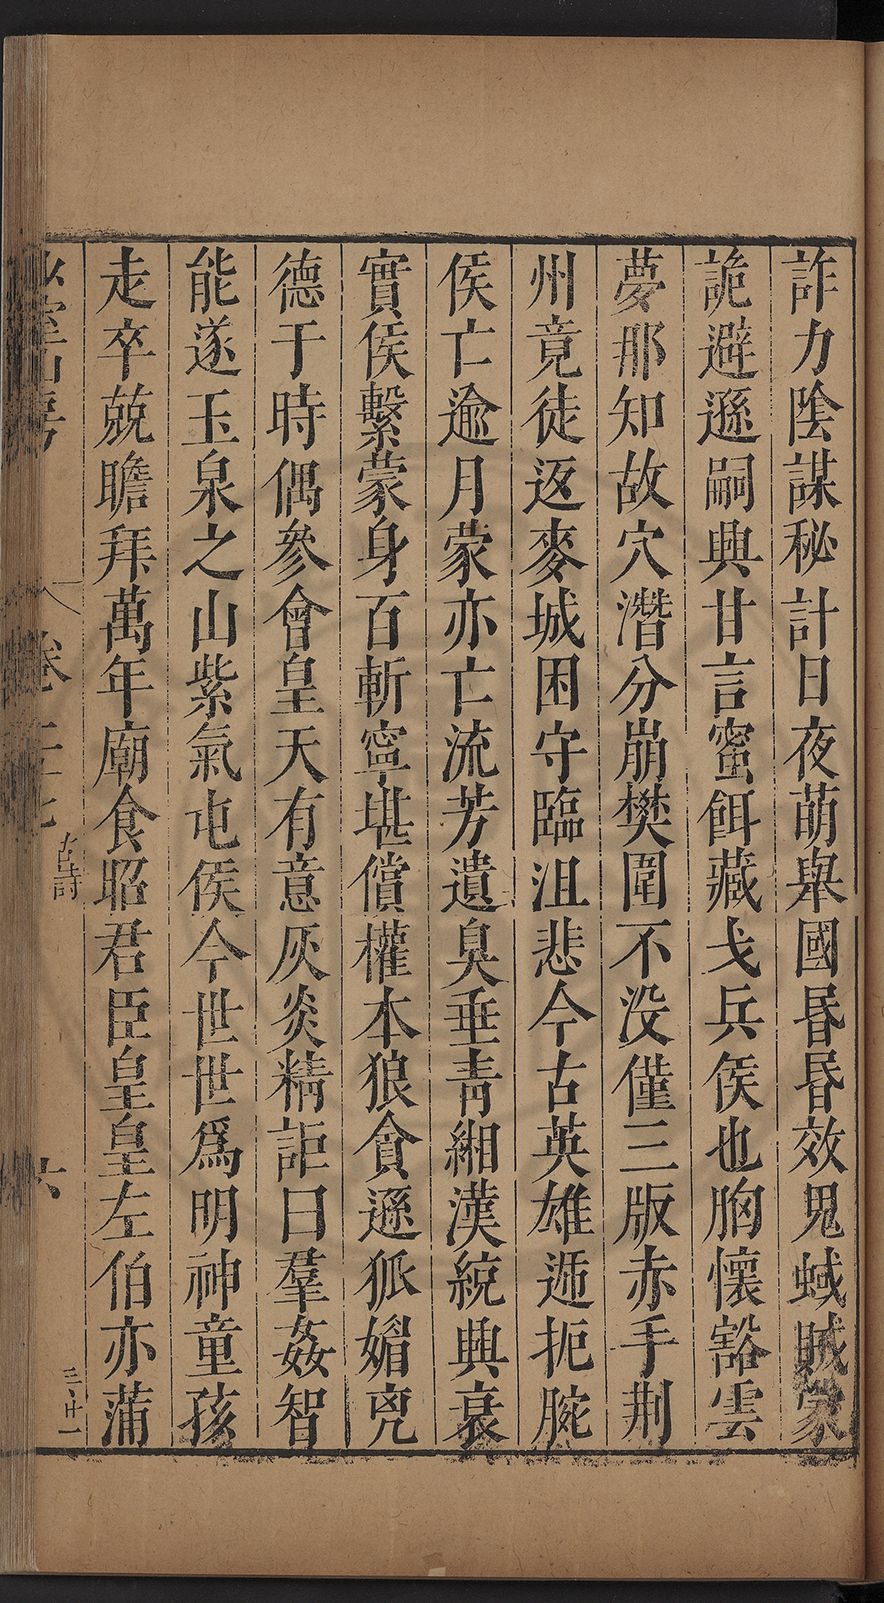 詐力陰謀秘計日夜萌舉國昏昏效鬼蜮賊蒙
詭避遜嗣興甘言蜜餌藏戈兵侯也胸懷豁雲
夢那知故穴潛分崩樊圍不没僅三版赤手荆
州竟徒返麥城困守臨沮悲今古英雄遞扼腕
侯亡逾月蒙亦亡流芳遺臭垂青緗漢統興衰
實侯繫蒙身百斬寧堪償權本狼貪遜狐媚兇
德于時偶參會皇天有意灰炎精詎曰羣姦智
能遂玉泉之山紫氣屯侯今世世爲明神童孩
走卒兢瞻拜萬年廟食昭君臣皇皇左伯亦蒲
山房
卷三七
古詩
六
三卄一